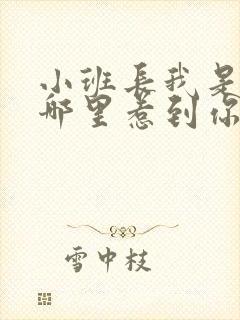 小班长我是
哪里惹到你
雪中枝